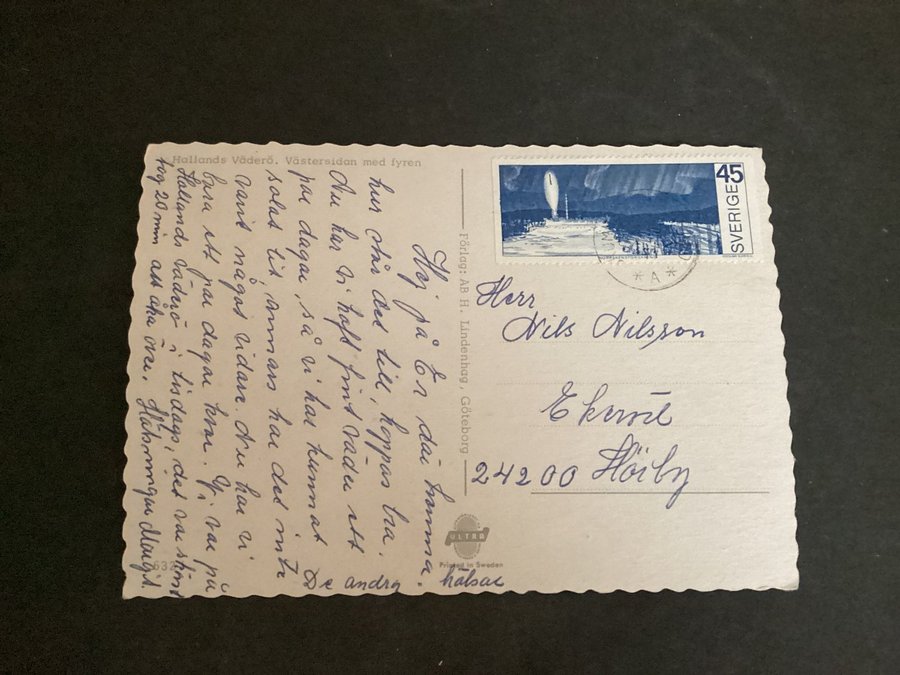 Hallands Väderö. Västersidan med fyren
Hej på Er där hemma.
hur står det till, hoppas bra.
Nu har vi haft fint väder ett
par dagar, så vi har kunnat
solat lit, annars har det inte
varit något vidare. Nu har vi
bara ett par dagar kvar. Vi var på
Hallands väderö i tisdags, det var skönt
tog 20 min att åka över. Hälsningar Margit.
De andra hälsar
Förlag: AB H. Lindenhag, Göteborg
SVERIGE 45
* A *
Herr
Nils Nilsson
Ekeröd
24200 Hörby
ULTRA
Printed in Sweden
632